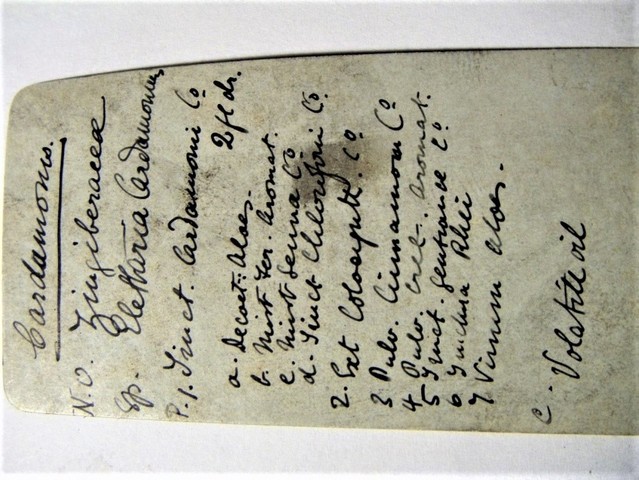 Cardamoms.
N.O. Zingiberaceæ
Sp. Elettaria Cardamomum
P. 1. Tinct. Cardamomi Co
2 fl dr.
a. Decoct: Aloes.
b. Mist Fer. Aromat.
c. Mist Senna Co
d. Tinct Chlorofomi Co.
2. Ext Colocynth. Co
3 Pulv. Cinnamom Co
4 Pulv. Cret. Aromat.
5 Tinct. Gentianæ Co
6 Tinctura Rhei
7 Vinum Aloes.
C. Volatile oil